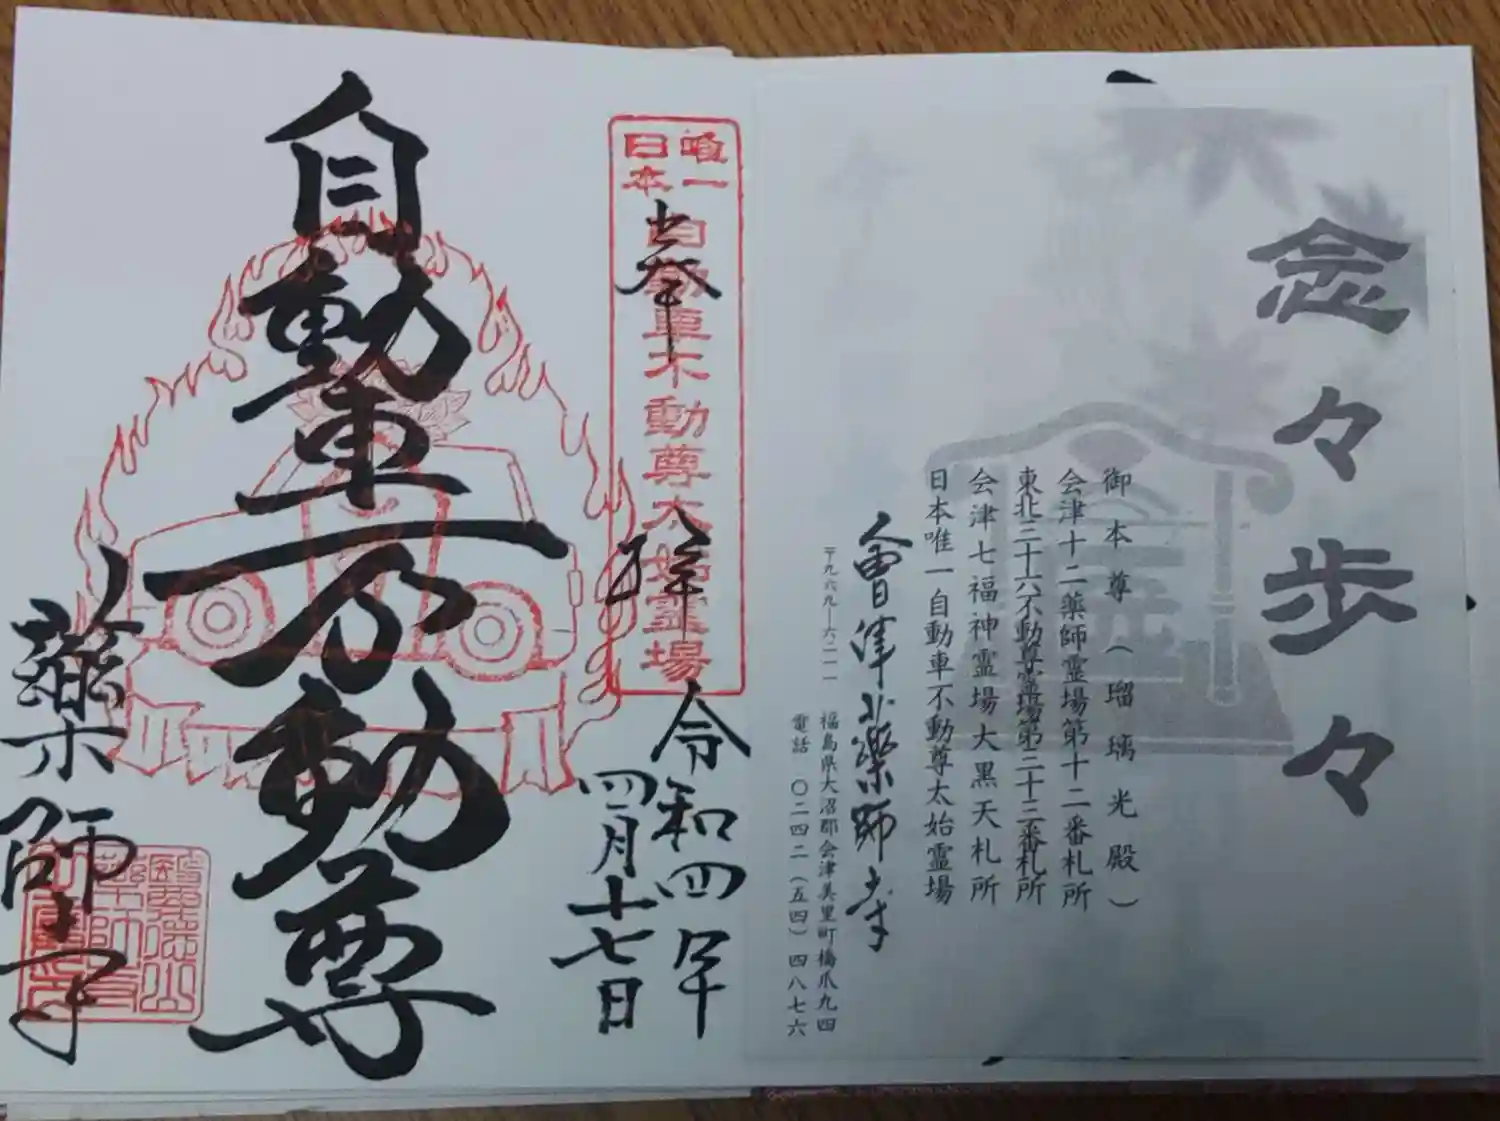 念々歩々
御本尊（瑠璃光殿）
会津十二薬師霊場第十二番札所
東北三十六不動尊霊場第二十三番札所
会津七福神霊場大黒天札所
日本唯一自動車不動尊太始霊場
會津北薬師寺
〒九六九ー六二一一
福島県大沼郡会津美里町橋爪九四
電話　〇二四二（五四）四八七六
唯一
日本
自動車不動尊太始霊場
奉拝
令和四年
四月十七日
自動車不動尊
薬師寺